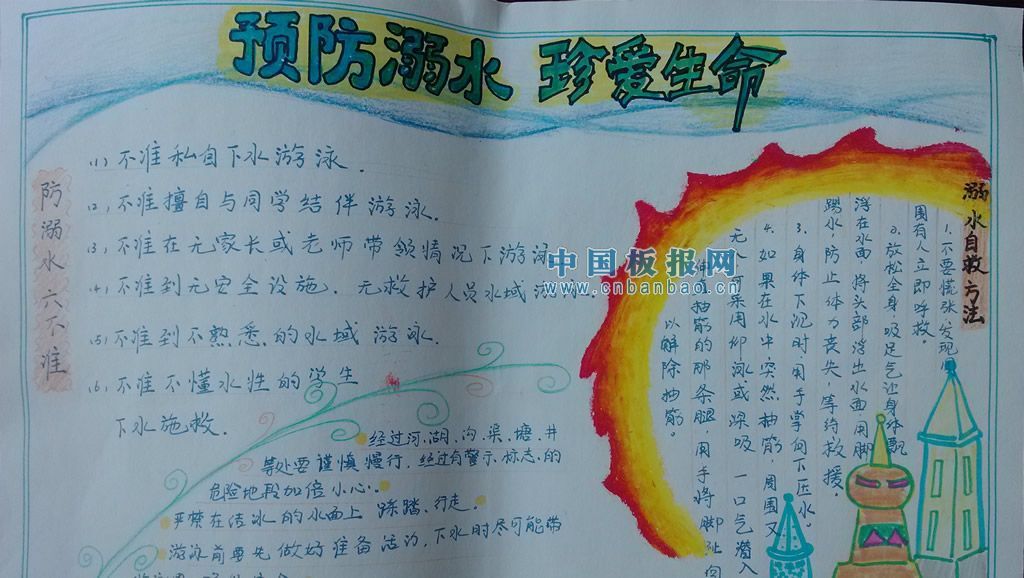 预防溺水 珍爱生命
防溺水六不准
(1)不准私自下水游泳.
(2)不准擅自与同学结伴游泳.
(3)不准在无家长或老师带领情况下游泳
(4)不准到无安全设施,无救护人员水域游泳.
(5)不准到不熟悉的水域游泳.
(6)不准不懂水性的学生
下水施救.
经过河、湖、沟、渠、塘、井
等处要谨慎慢行,经过有警示标志的
危险地段加倍小心.
严禁在结冰的水面上踩踏、行走.
游泳前要先做好准备活动,下水时尽可能带
溺水自救方法
1.不要慌张,发现周
围有人立即呼救。
2.放松全身,吸足气让身体飘
浮在水面,将头部浮出水面,用脚
踢水,防止体力丧失,等待救援。
3.身体下沉时,用手掌向下压水。
4.如果在水中突然抽筋,周围又
无人,可采用仰泳或深吸一口气潜入
抽筋的那条腿,用手将脚趾向
以解除抽筋。
中国板报网
www.cnbanbao.cn